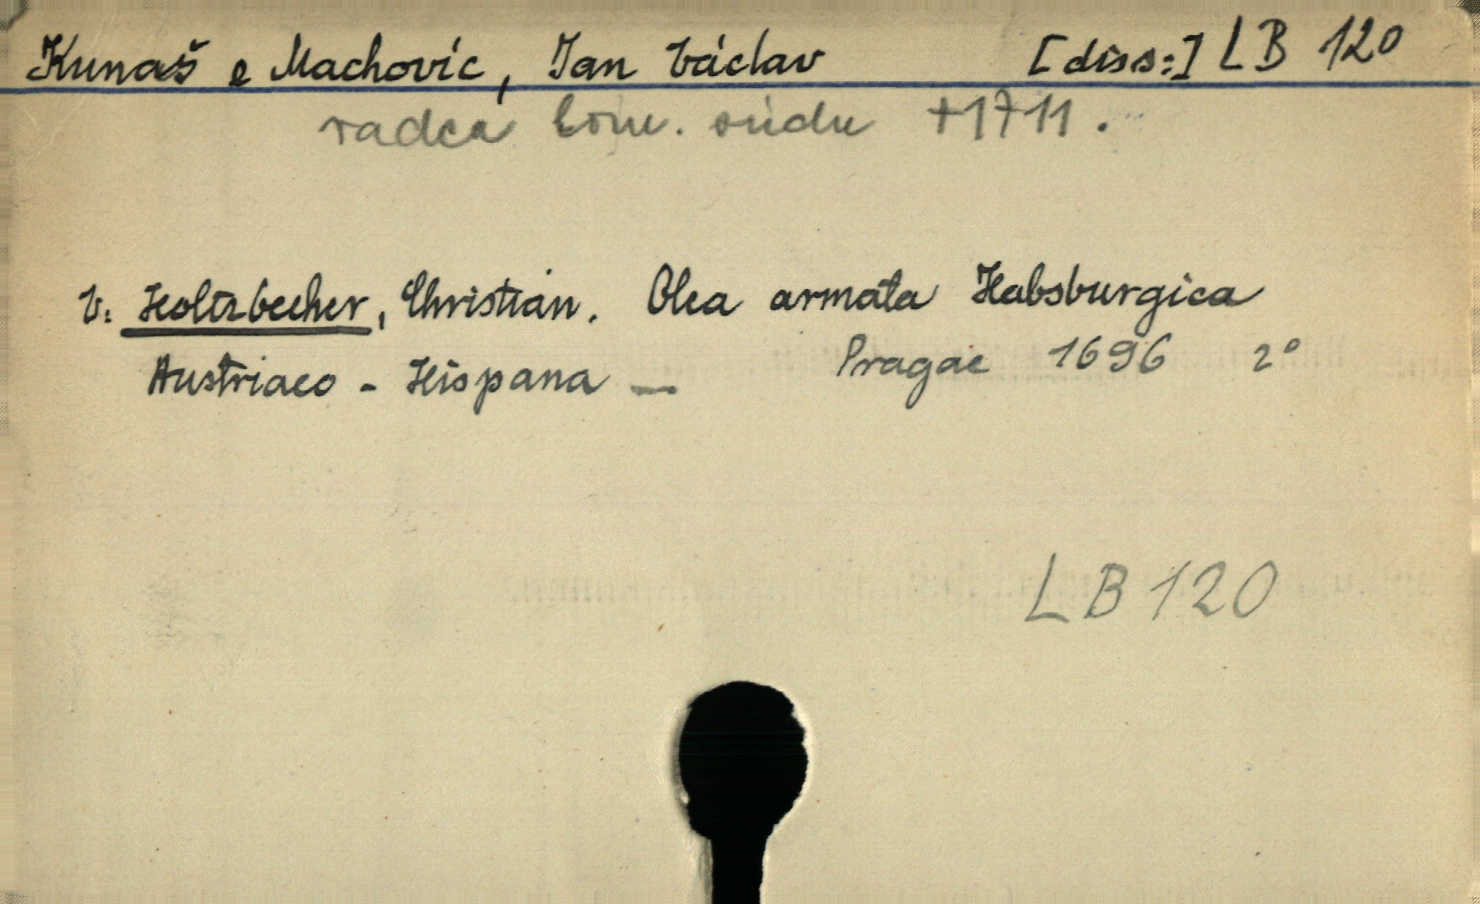 Kunaš e Machovic, Jan Václav [diss:] LB 120
radca kom. súdu +1711.
V. Holtzbecher, Christian. Olea armata Habsburgica
Austriaco - Hispana — Pragae 1696 2°
LB 120